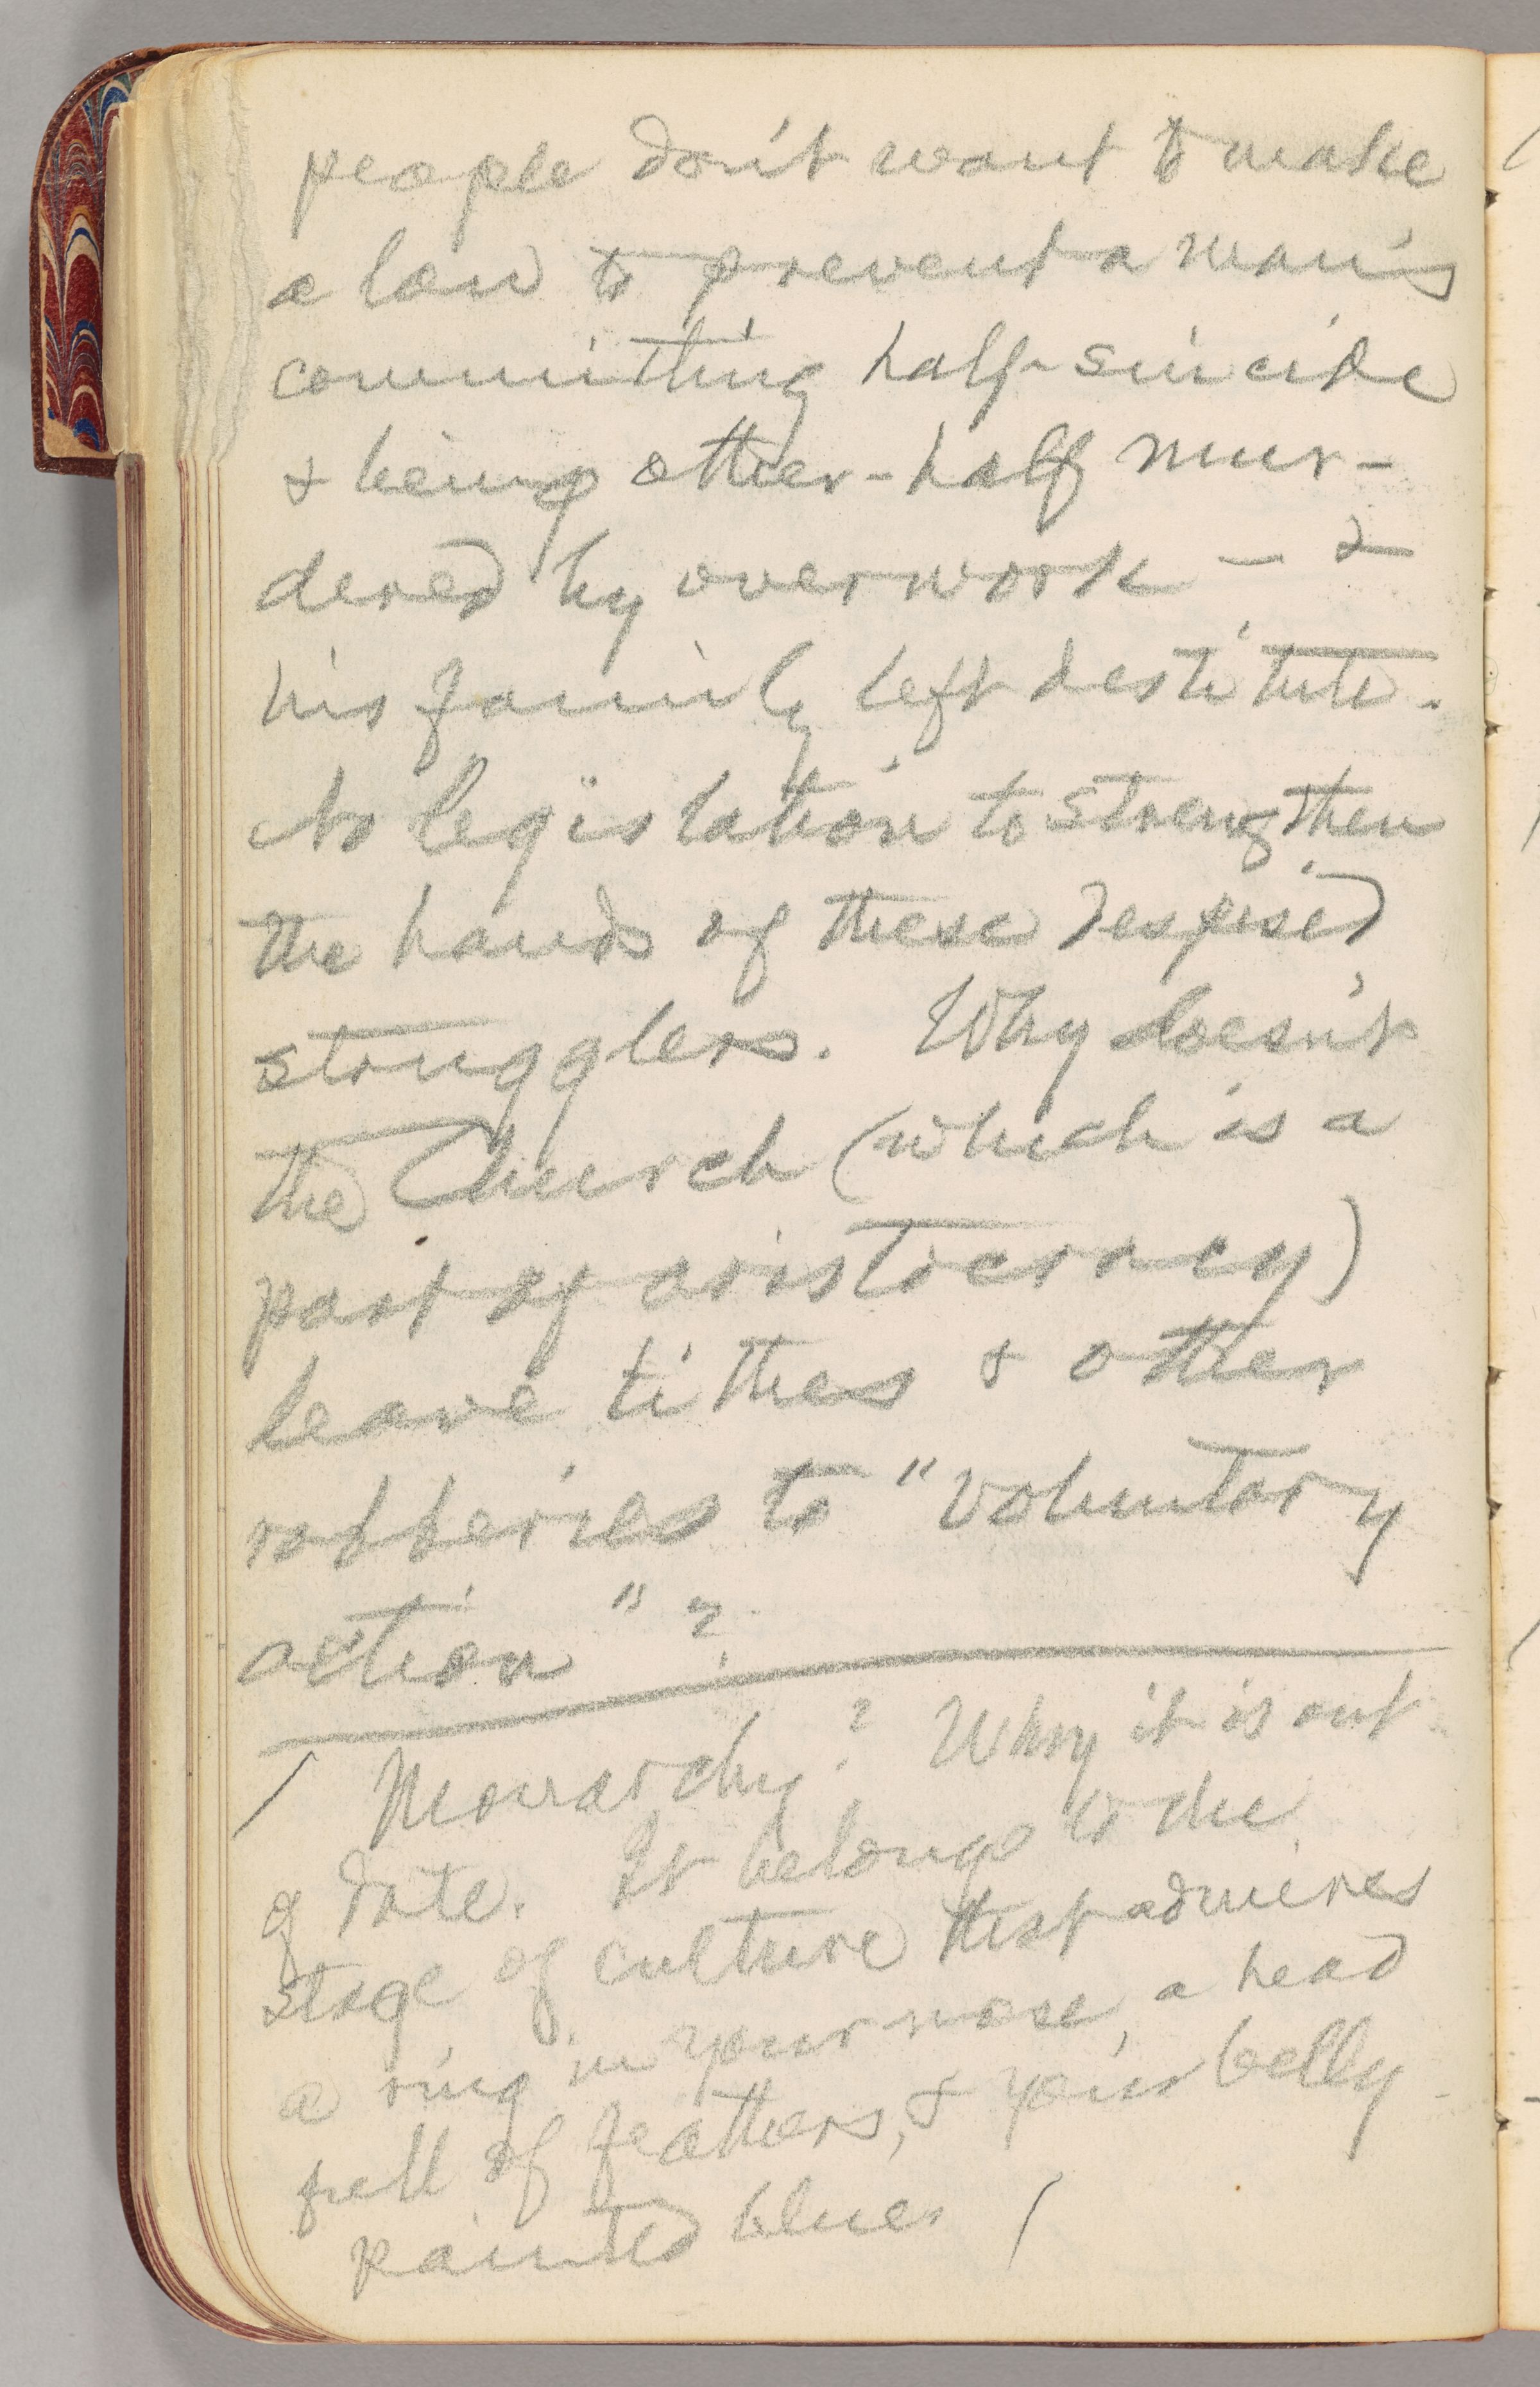 people don't want to make
a law to prevent a man's
committing half-suicide
& being other-half mur-
dered by overwork – &
his family left destitute.
No legislation to strengthen
the hands of these despised
strugglers. Why doesn't
the Church (which is a
part of aristocracy)
leave tithes & other
robberies to "voluntary
action"?
/ Monarchy? Why it is out
of date. It belongs to the
stage of culture that admires
a ring in your nose, a head
full of feathers, & your belly
painted blue. /